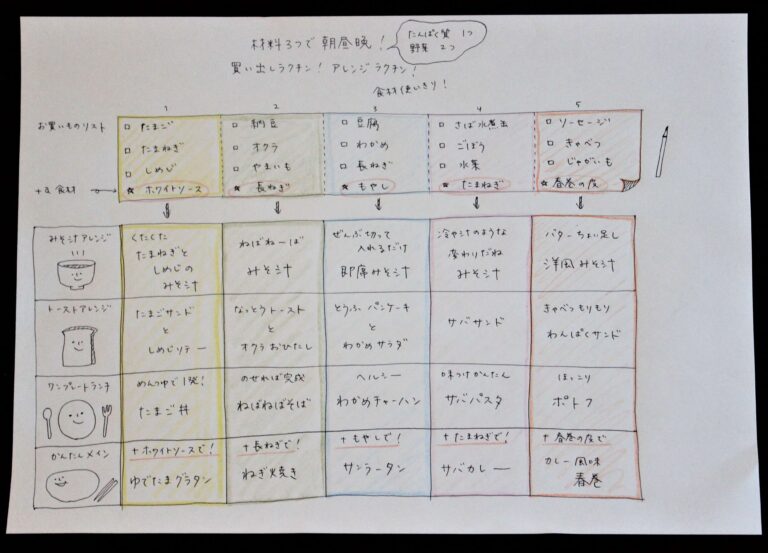 材料3つで 朝昼晩！
たんぱく質 1つ
野菜 2つ
買い出しラクチン！ アレンジ ラクチン！
食材使いきり！
1 2 3 4 5
お買いものリスト
□ たまご
□ たまねぎ
□ しめじ
☆ ホワイトソース
□ 納豆
□ オクラ
□ やまいも
☆ 長ねぎ
□ 豆腐
□ わかめ
□ 長ねぎ
☆ もやし
□ さば水煮缶
□ ごぼう
□ 水菜
☆ たまねぎ
□ ソーセージ
□ きゃべつ
□ じゃがいも
☆ 春巻の皮
+α 食材
みそ汁アレンジ
くたくた
たまねぎと
しめじの
みそ汁
ねばねーば
みそ汁
ぜんぶ切って
入れるだけ
即席みそ汁
冷や汁のような
変わりだね
みそ汁
バターちょい足し
洋風みそ汁
トーストアレンジ
たまごサンド
と
しめじソテー
なっとうトースト
と
オクラおひたし
とうふパンケーキ
と
わかめサラダ
サバサンド
きゃべつもりもり
わんぱくサンド
ワンプレートランチ
めんつゆで1発！
たまご丼
のせれば完成
ねばねばそば
ヘルシー
わかめチャーハン
味つけかんたん
サバパスタ
ほっこり
ポトフ
かんたんメイン
+ホワイトソースで！
ゆでたまグラタン
+長ねぎで！
ねぎ焼き
+もやしで！
サンラータン
+たまねぎで！
サバカレー
+春巻の皮で
カレー風味
春巻